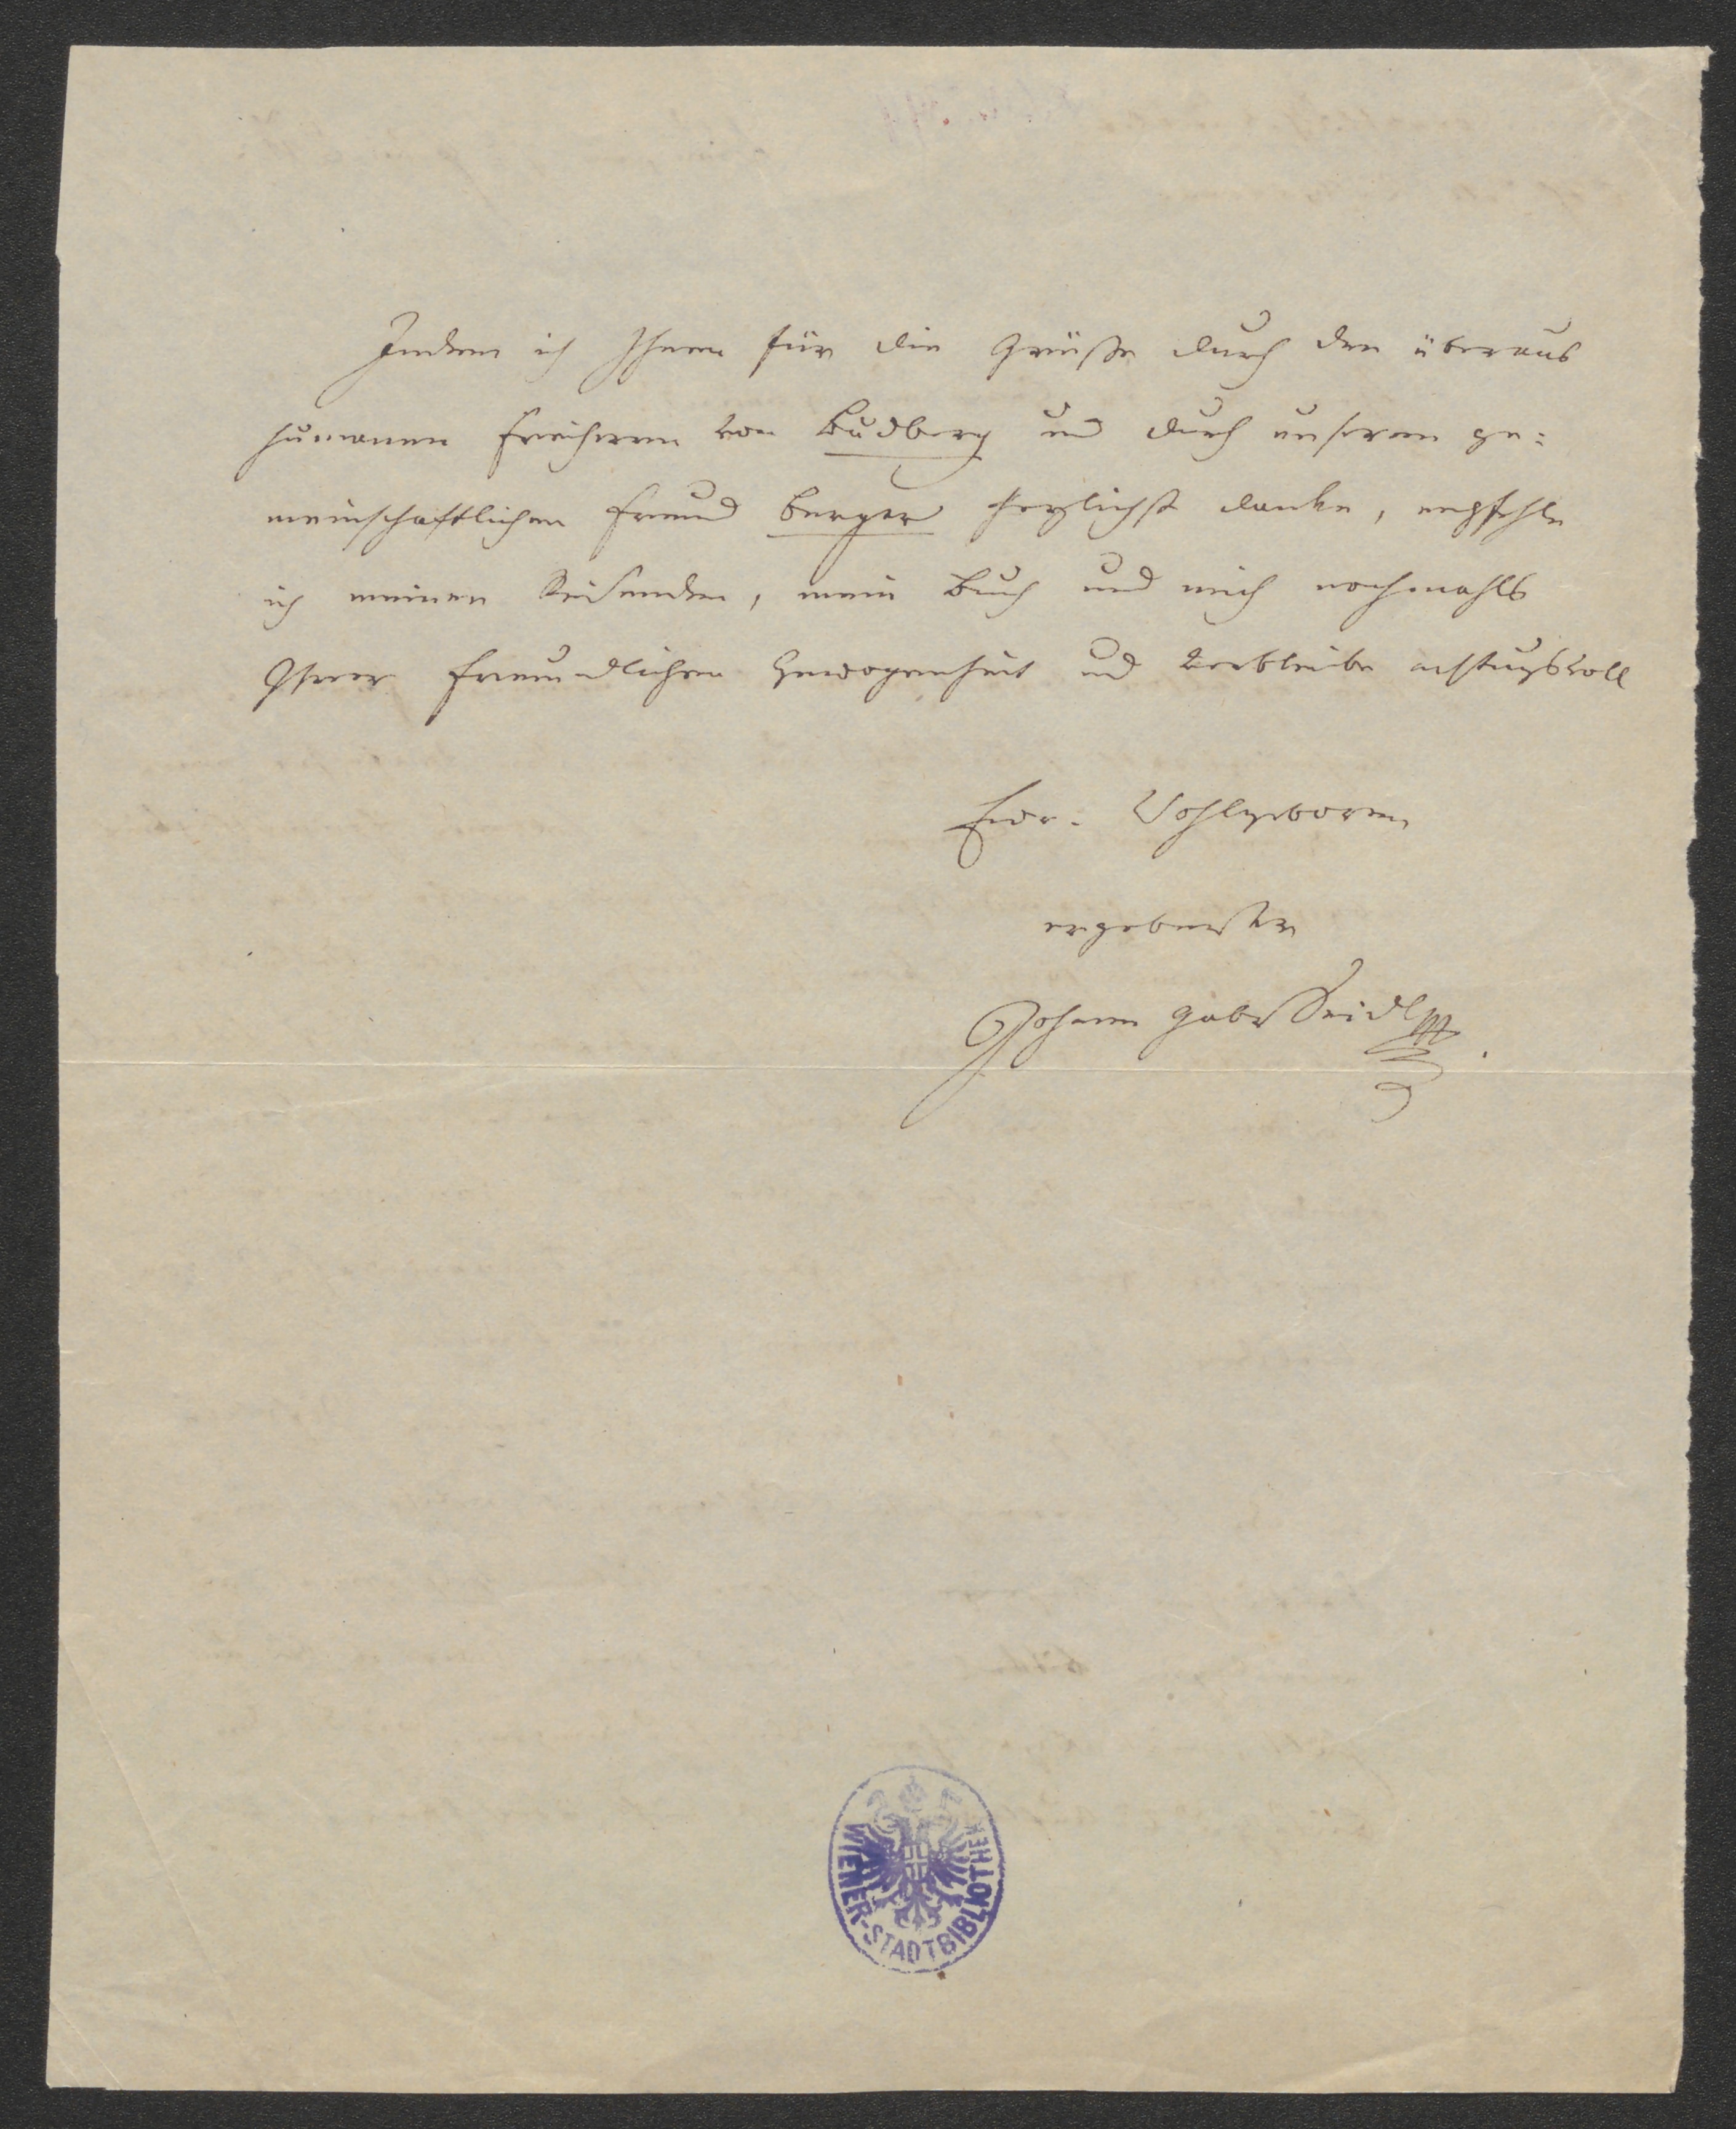 Indem ich Ihnen für die Grüße durch den überaus
humanen Freiherrn von Budberg und durch unseren ge=
meinschaftlichen Freund Berger herzlichst danke, empfehle
ich meinen Reisenden, mein Buch und mich nochmahls
Ihrer freundlichen Gewogenheit und verbleibe achtungsvoll
Euer. Wohlgeboren
ergebenster
Johann Gabr Seidl
WIENER-STADTBIBLIOTHEK